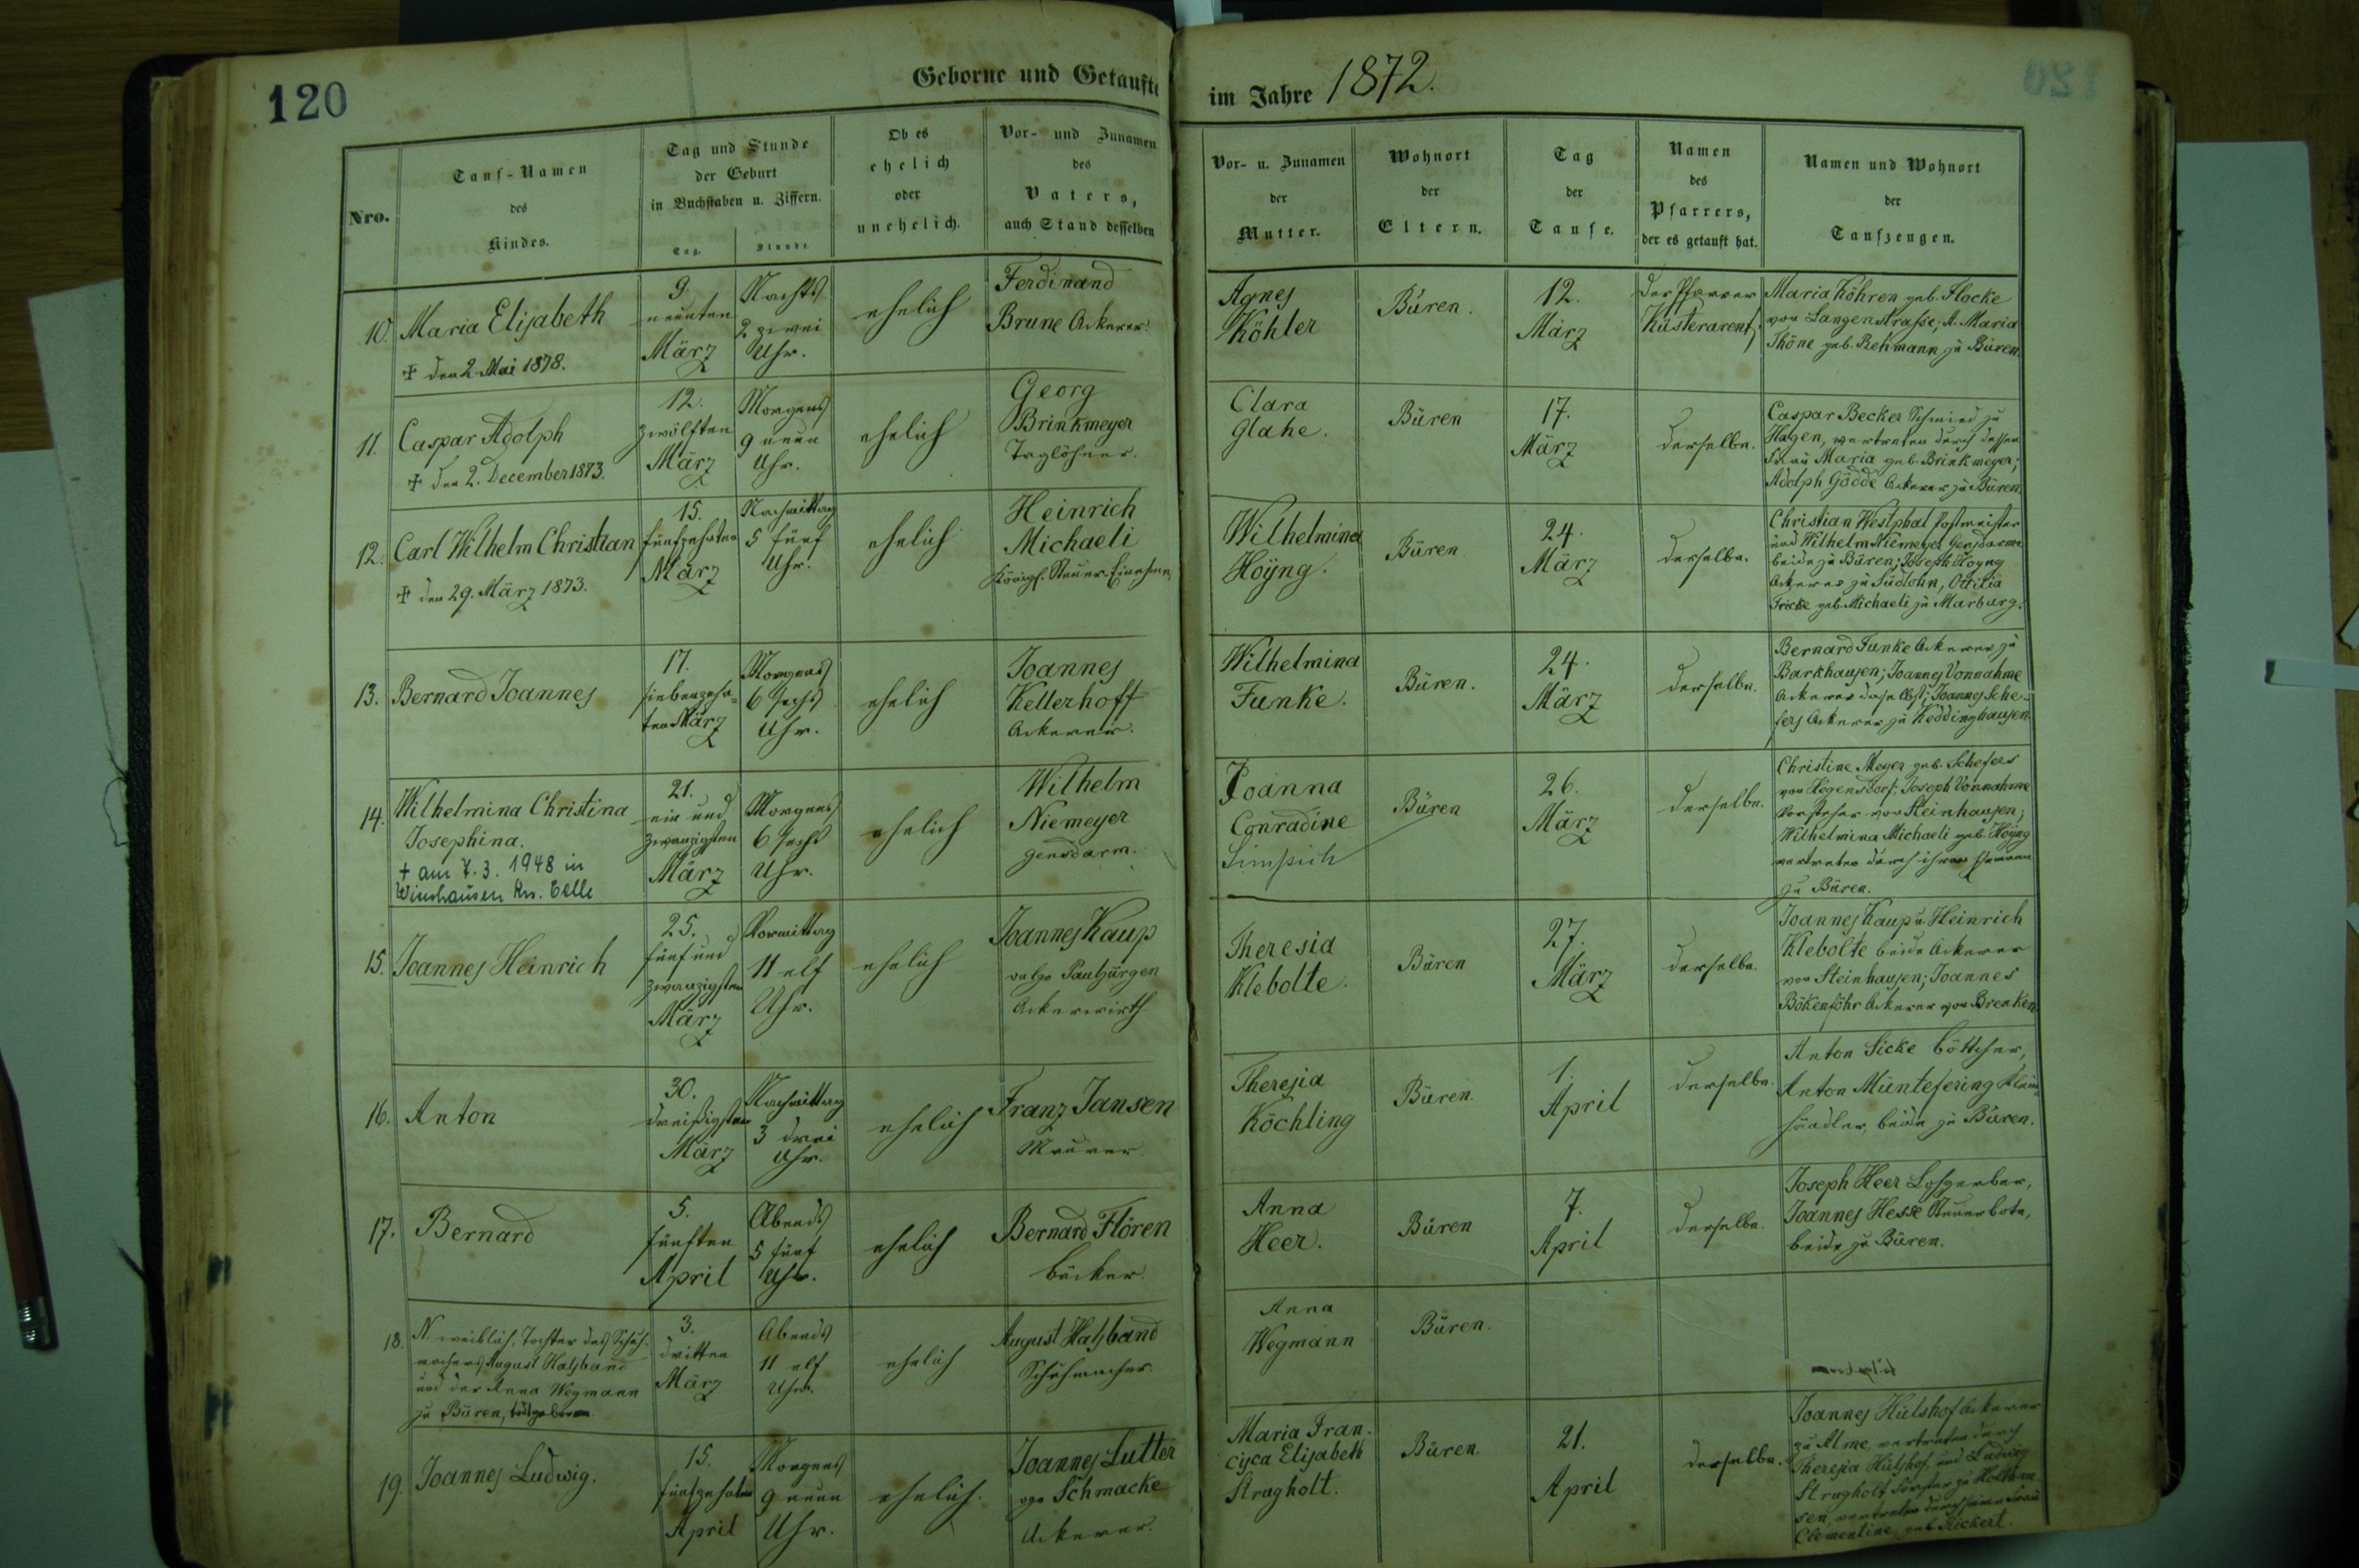 120
Geborne und Getaufte im Jahre 1872.
Nro.
Tauf-Namen
des
Kindes.
Tag und Stunde
der Geburt
in Buchstaben u. Ziffern.
Tag.
Stunde
Ob es
ehelich
oder
unehelich.
Vor- und Zunamen
des
Vaters,
auch Stand desselben
Vor- u. Zunamen
der
Mutter.
Wohnort
der
Eltern.
Tag
der
Taufe.
Namen
des
Pfarrers,
der es getauft hat.
Namen und Wohnort
der
Taufzeugen.
10.
Maria Elisabeth
† den 2. Mai 1878.
9.
neunten
März
Nachts
2 zwei
Uhr.
ehelich
Ferdinand
Brune Ackerer
Agnes
Köhler
Büren.
12.
März
der Pfarrer
Küsterarent
Maria Köhren geb. Flocke
von Langenstraße; A. Maria
Thöne geb. Rehmann zu Büren.
11.
Caspar Adolph
† den 2. December 1873.
12.
zwölften
März
Morgens
9 neun
Uhr.
ehelich
Georg
Brinkmeyer
Taglöhner.
Clara
Glahe.
Büren
17.
März
derselbe.
Caspar Becker Schmied zu
Hagen, vertreten durch dessen
Frau Maria geb. Brinkmeyer;
Adolph Gödde Ackerer zu Büren.
12.
Carl Wilhelm Christian
† den 29. März 1873.
15.
fünfzehnten
März
Nachmittag
5 fünf
Uhr.
ehelich
Heinrich
Michaeli
Königl. Steuer-Einehmer
Wilhelmina
Hoÿng.
Büren.
24.
März
derselbe.
Christian Westphal Postmeister
und Wilhelm Niemeyer Gensdarm
beide zu Büren; Joseph Hoyng
Ackerer zu Südlohn, Ottilia
Fricke geb. Michaeli zu Marburg.
13.
Bernard Joannes
17.
siebenzehn-
ten März
Morgens
6 sechs
Uhr.
ehelich
Joannes
Kellerhoff
Ackerer.
Wilhelmina
Funke.
Büren.
24.
März
derselbe.
Bernard Funke Ackerer zu
Barkhausen; Joannes Vonnahme
Ackerer daselbst; Joannes Sche-
fers Ackerer zu Keddinghausen.
14.
Wilhelmina Christina
Josephina.
† am 7. 3. 1948 in
Wienhausen Kr. Celle
21.
ein und
zwanzigsten
März
Morgens
6 sechs
Uhr.
ehelich
Wilhelm
Niemeyer
Gensdarm.
Joanna
Conradine
Simpich
Büren
26.
März
derselbe.
Christine Meyer geb. Schefers
von Hegensdorf; Joseph Vonnahme
Vorsteher von Steinhausen;
Wilhelmina Michaeli geb. Hoÿng
vertreten durch ihren Ehemann
zu Büren.
15.
Joannes Heinrich
25.
fünf und
zwanzigsten
März
Vormittag
11 elf
Uhr.
ehelich
Joannes Kaup
vulgo Pauljürgen
Ackerwirth
Theresia
Klebolte.
Büren
27.
März
derselbe.
Joannes Kaup u. Heinrich
Klebolte beide Ackerer
von Steinhausen; Joannes
Bökenföhr Ackerer von Brenken
16.
Anton
30.
dreißigsten
März
Nachmittag
3 drei
Uhr.
ehelich
Franz Jansen
Maurer.
Theresia
Köchling
Büren.
1.
April
derselbe.
Anton Sicke Böttcher,
Anton Müntefering Klein-
händler, beide zu Büren.
17.
Bernard
5.
fünften
April
Abends
5 fünf
Uhr.
ehelich
Bernard Flören
bäcker.
Anna
Heer.
Büren
7.
April
derselbe.
Joseph Heer Lohgerber,
Joannes Hesse Steuerbote,
beide zu Büren.
18.
N. weiblich. Tochter des Schuh-
machers August Halsband
und der Anna Wegmann
zu Büren, todtgeboren.
3.
dritten
März
Abends
11 elf
Uhr.
ehelich
August Halsband
Schuhmacher.
Anna
Wegmann
Büren.
19.
Joannes Ludwig.
15.
fünfzehnten
April
Morgens
9 neun
Uhr.
ehelich.
Joannes Lutter
vgo Schmacke
Ackerer.
Maria Fran-
cisca Elisabeth
Strugholt.
Büren.
21.
April
derselbe.
Joannes Hülshof Ackerer
zu Alme vertreten durch
Theresia Hülshof, und Ludwig
Strugholt Förster zu Holthau-
sen, vertreten durch seine Frau
Clementine, geb. Rickert.